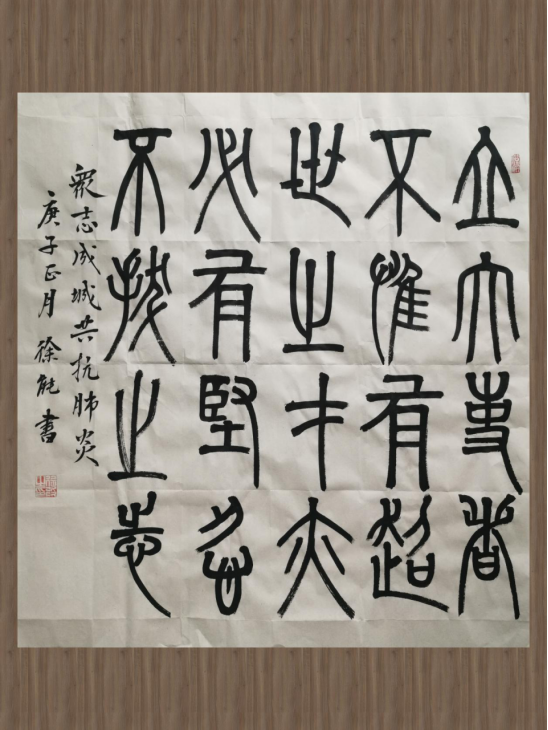 立大事者
不惟有超
世之才亦
必有堅忍
不拔之志
衆志成城共抗肺炎
庚子正月徐能書